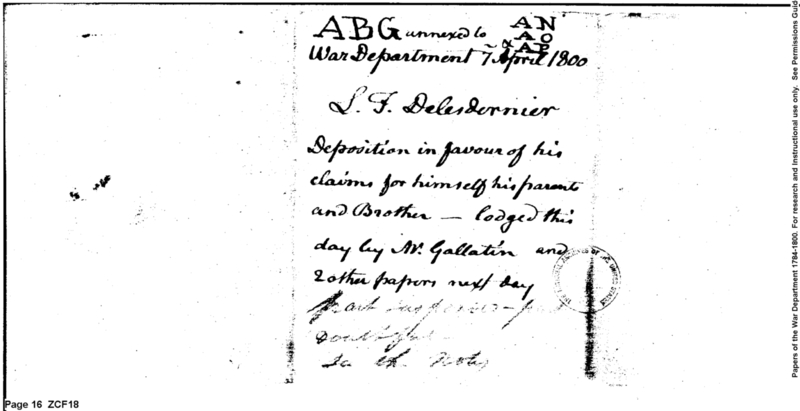 ABG annexed to AN
AO
& AP
War Department 7 April 1800
L. F. Delesdernier
Deposition in favour of his
claims for himself his parents
and Brother — lodged this
day by Mr. Gallatin and
2 other papers next day
doubtful
Page 16 ZCF18
Papers of the War Department 1784-1800. For research and instructional use only. See Permissions Guid